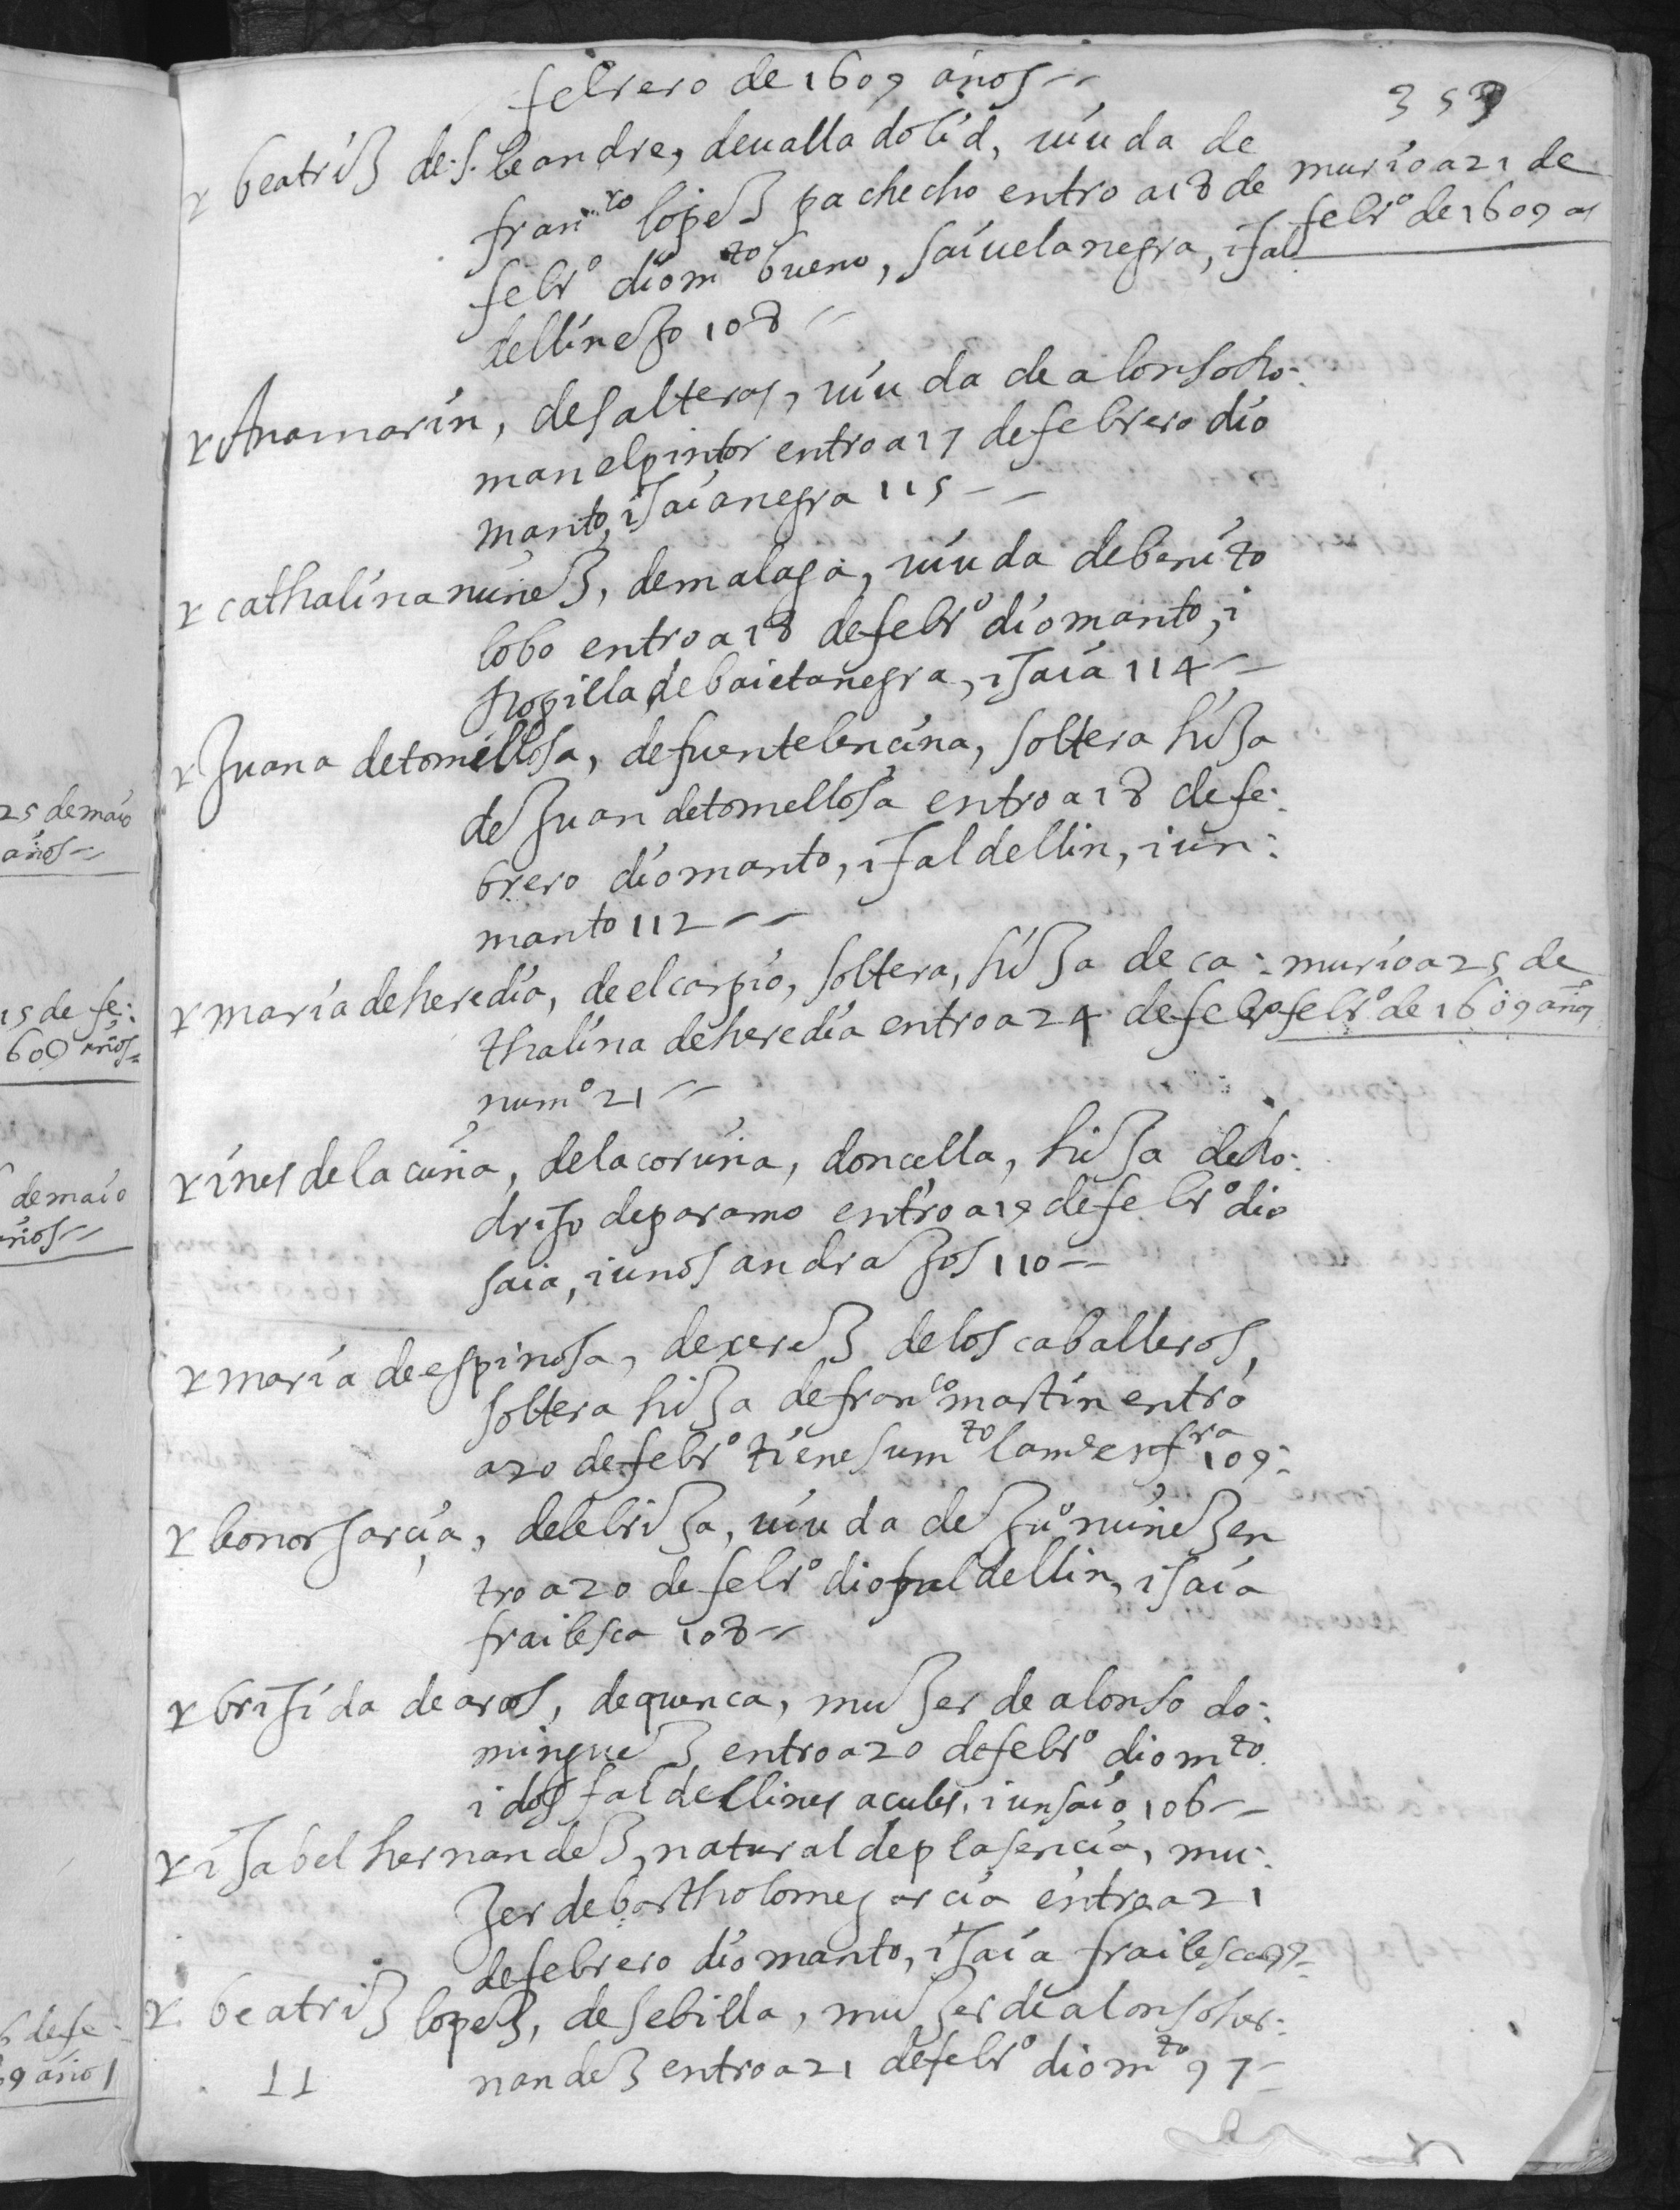 febrero de 1609 años
359
r beatriz de s. leandre, de ualladolid, uiuda de
fran^co lopez pachecho entro a 18 de
febr^o dio m^to bueno, saiuela negra, i fal
dellinezo 108
murio a 21 de
febr^o de 1609 as
r Ana marin, de salteras, uiuda de alonso ro:
man el pintor entro a 17 de febrero dio
manto, i saia negra 115
r cathalina nuñez, de malaga, uiuda de benito
lobo entro a 18 de febr^o dio manto, i
ropilla de baieta negra, i saia 114
r Juana de tomellosa, de fuentelencina, soltera hija
de Juan de tomellosa entro a 18 de fe:
brero dio manto, i faldellin, i un:
manto 112
r maria de heredia, de el carpio, soltera, hija de ca:
thalina de heredia entro a 24 de febr^o
num^o 21
murio a 25 de
febr^o de 1609 años
r ines de la cuña, de la coruña, doncella, hija de ro:
drigo de paramo entro a 19 de febr^o dio
saia, i unos andrajos 110
r maria de espinosa, de xerez de los caballeros,
soltera hija de fran^co martin entro
a 20 de febr^o tiene su m^to la m^e enf^ra 109:
r leonor garcia, de lebrija, uiuda de Ju^o nuñez en
tro a 20 de febr^o dio faldellin, i saia
frailesca 108
r brigida de arcos, de quenca, mujer de alonso do:
minguez entro a 20 de febr^o dio m^to
i dos faldellines açules, i un saio, 106
r isabel hernandez, natural de plasencia, mu:
jer de bartholome garcia entro a 21
de febrero dio manto, i saia frailesca 99
r beatriz lopez, de sebilla, mujer de alonso her:
nandez entro a 21 de febr^o dio m^to 97
11
25 de maio
años
15 de fe:
609 años
de maio
años
6 de fe:
09 años